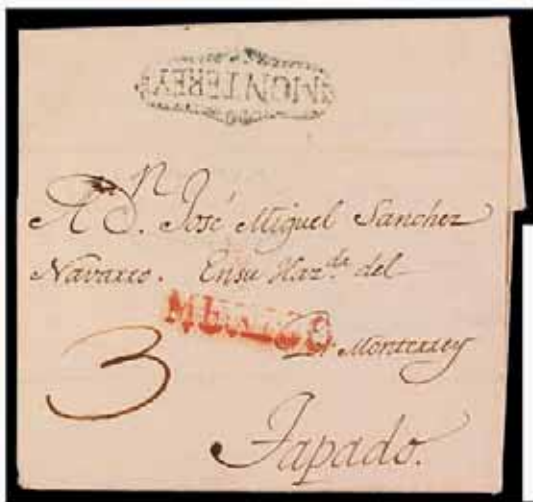 MONTEREY
A D.n José Miguel Sanchez
Navarro. Ensu Haz.da del
MEXICO
Pr Monterrey
3
Tapado.